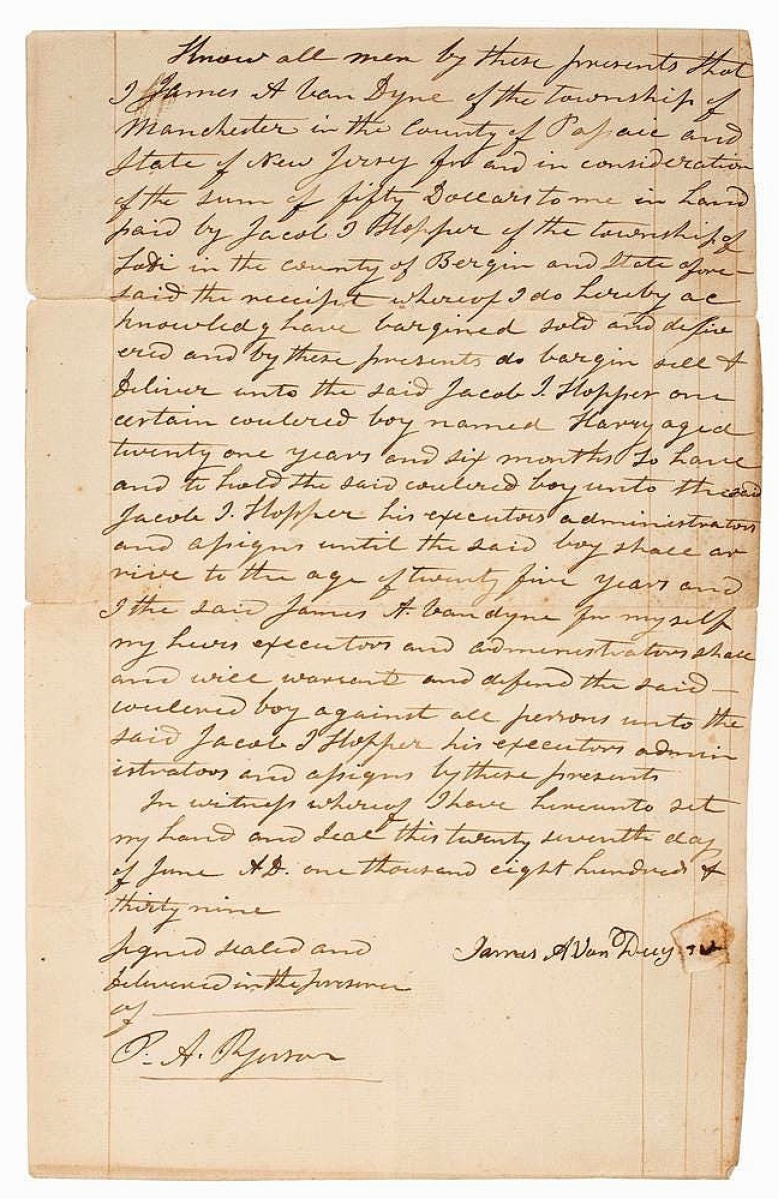 Know all men by these presents that
I James A Van Dyne of the township of
Manchester in the County of Passaic and
State of New Jersey for and in consideration
of the sum of fifty Dollars to me in hand
paid by Jacob I Hopper of the township of
Lodi in the county of Bergin and State afore-
said the receipt whereof I do hereby ac
knowledg have bargined sold and deliv
ered and by these presents do bargin sell &
deliver unto the said Jacob I. Hopper one
certain coulered boy named Harry aged
twenty one years and six months To have
and to hold the said coulered boy unto the said
Jacob I. Hopper his executors administrators
and assigns until the said boy shall ar
rive to the age of twenty five years and
I the said James A. Vandyne for myself
my heirs executors and administrators shall
and will warrant and defend the said -
coulered boy against all persons unto the
said Jacob I Hopper his executors admin
istrators and assigns by these presents
In witness whereof I have hereunto set
my hand and seal this twenty seventh day
of June AD. one thousand eight hundred &
thirty nine
signed sealed and
delivered in the presence
of
James A Van
P. A. Ryerson